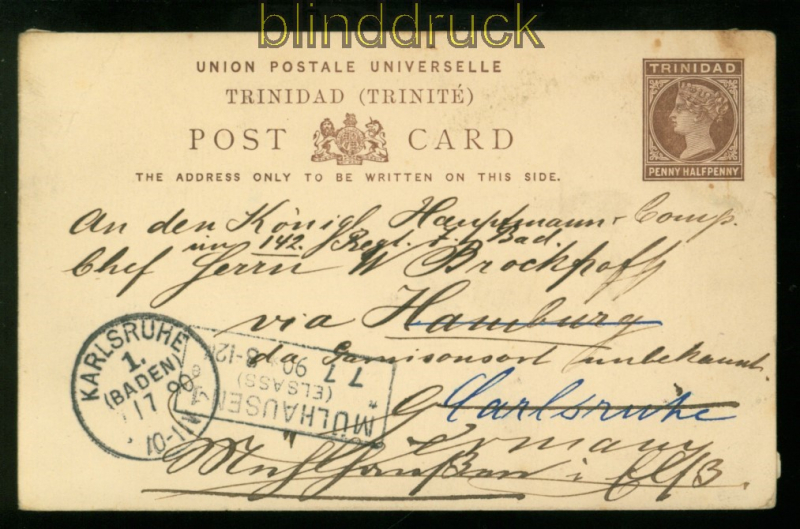 blinddruck
UNION POSTALE UNIVERSELLE
TRINIDAD (TRINITÉ)
POST CARD
THE ADDRESS ONLY TO BE WRITTEN ON THIS SIDE.
TRINIDAD
PENNY HALFPENNY
An den Königl Hauptmann-Comp.
im 142. Regt. Bad.
Chef Herrn W Brockhoff
via Hamburg
da Garnisonsort unbekannt.
Carlsruhe
Germany
Muhlhaußen i. Elß.
KARLSRUHE
1.
(BADEN)
17 90
10-11
MÜLHAUSEN
(ELSASS)
7 7
90 8-12